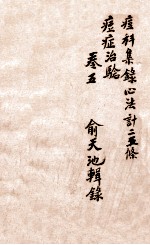 痧科集錄心法計二五條
痧症治驗 卷五 俞天池輯錄